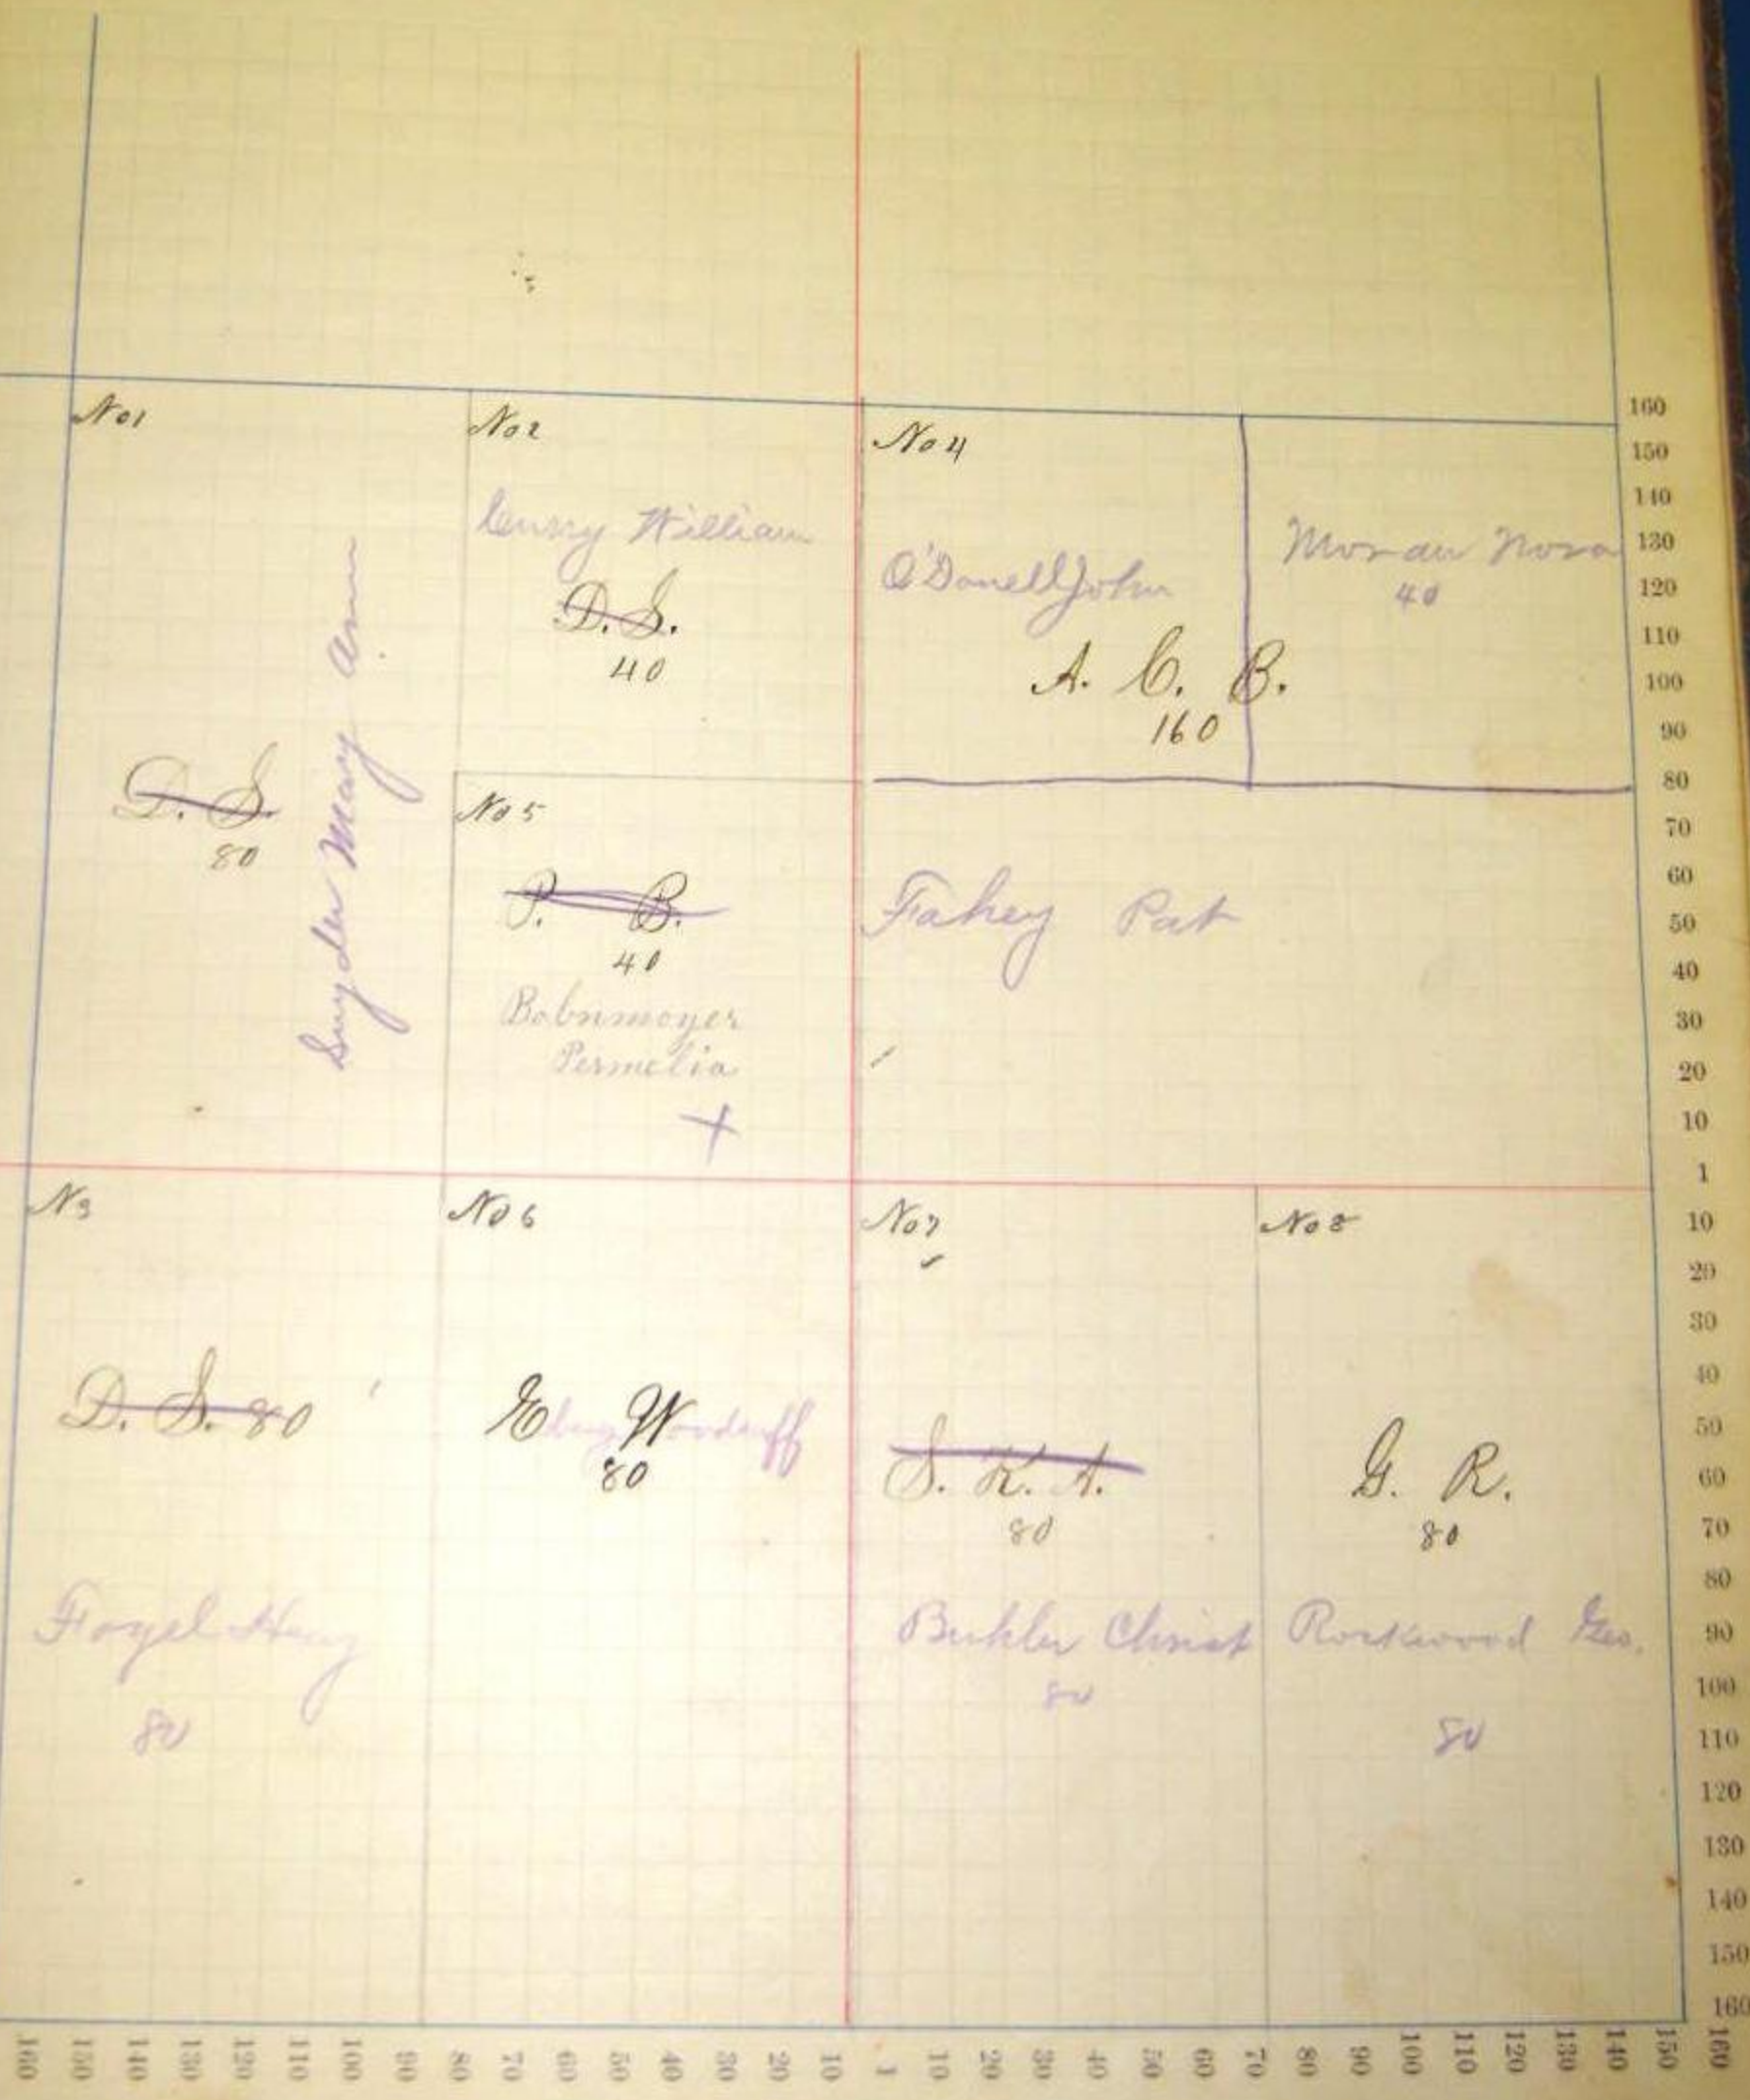 No 1
Snyder Mary Ann
D. S.
80
No 2
William
D. S.
40
No 4
O'Donell John
A. C. B.
160
Moran Nora
40
No 5
P. B.
40
Permelia
Fahey Pat
N 3
D. S. 80
80
No 6
E W
80
No 7
S. K. A.
80
Christ
80
No 8
G. R.
80
Rockwood Geo.
80
160
150
140
130
120
110
100
90
80
70
60
50
40
30
20
10
1
10
20
30
40
50
60
70
80
90
100
110
120
130
140
150
160
160 150 140 130 120 110 100 90 80 70 60 50 40 30 20 10 1 10 20 30 40 50 60 70 80 90 100 110 120 130 140 150 160